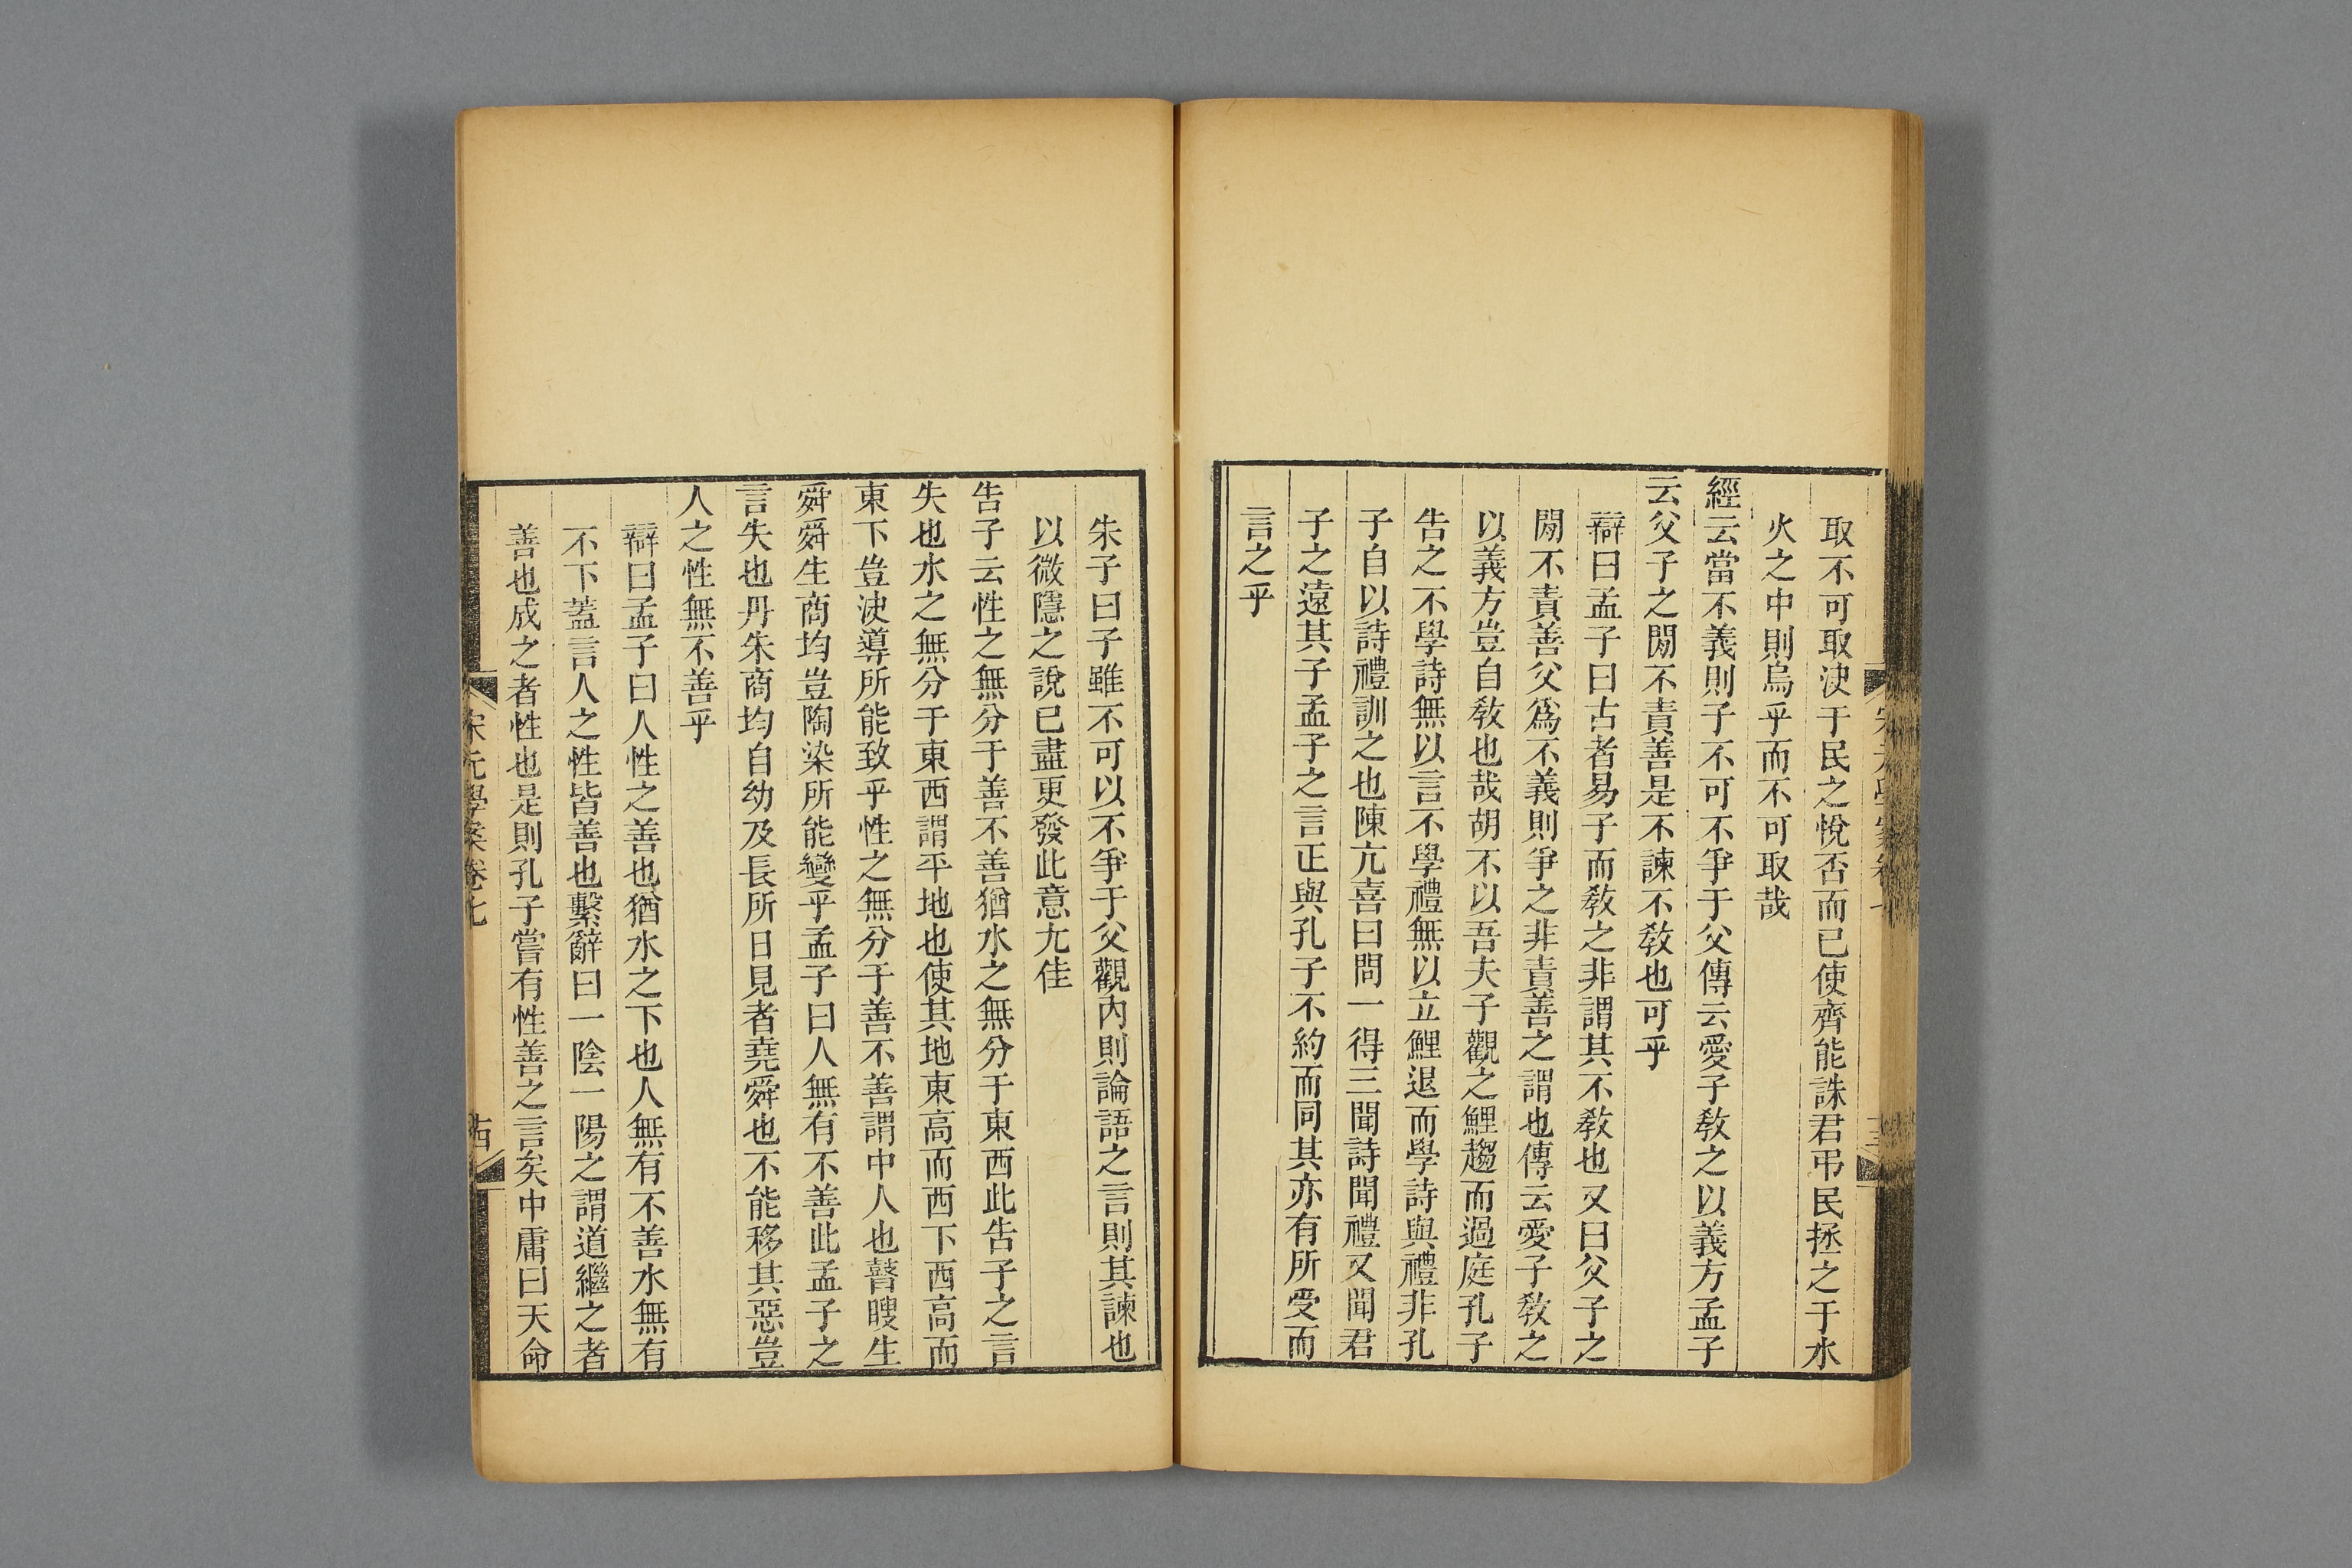 取不可取決于民之悅否而已使齊能誅君弔民拯之于水
火之中則烏乎而不可取哉
經云當不義則子不可不爭于父傳云愛子敎之以義方孟子
云父子之閒不責善是不諫不敎也可乎
辯曰孟子曰古者易子而敎之非謂其不敎也又曰父子之
閒不責善父爲不義則爭之非責善之謂也傳云愛子敎之
以義方豈自敎也哉胡不以吾夫子觀之鯉趨而過庭孔子
告之不學詩無以言不學禮無以立鯉退而學詩與禮非孔
子自以詩禮訓之也陳亢喜曰問一得三聞詩聞禮又聞君
子之遠其子孟子之言正與孔子不約而同其亦有所受而
言之乎
朱子曰子雖不可以不爭于父觀內則論語之言則其諫也
以微隱之說已盡更發此意尤佳
告子云性之無分于善不善猶水之無分于東西此告子之言
失也水之無分于東西謂平地也使其地東高而西下西高而
東下豈決導所能致乎性之無分于善不善謂中人也瞽瞍生
舜舜生商均豈陶染所能變乎孟子曰人無有不善此孟子之
言失也丹朱商均自幼及長所日見者堯舜也不能移其惡豈
人之性無不善乎
辯曰孟子曰人性之善也猶水之下也人無有不善水無有
不下蓋言人之性皆善也繫辭曰一陰一陽之謂道繼之者
善也成之者性也是則孔子嘗有性善之言矣中庸曰天命
宋元學案卷七
古